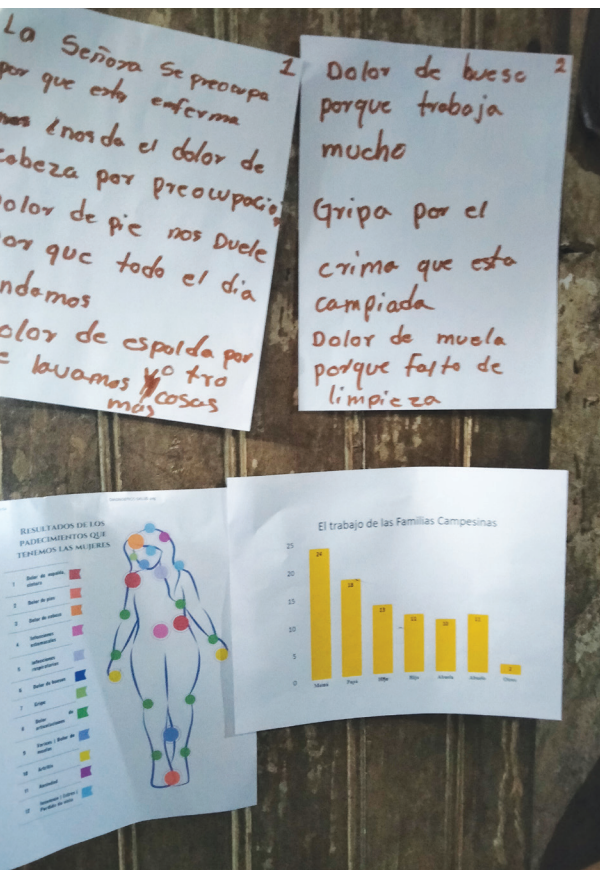 La Señora Se preocupa
por que esta enferma
inos da el dolor de
cabeza por preocupacio
dolor de pie nos Duele
por que todo el dia
andamos
dolor de espalda por
lavamos y otro
más cosas
1
Dolor de hueso 2
porque trabaja
mucho
Gripa por el
crima que esta
campiada
Dolor de muela
porque falto de
limpieza
RESULTADOS DE LOS
PADECIMIENTOS QUE
TENEMOS LAS MUJERES
1 Dolor de espalda,
cintura
2 Dolor de pies
3 Dolor de cabeza
4 Infecciones
estomacales
5 Infecciones
respiratorias
6 Dolor de huesos
7 Gripa
8 Dolor de
articulaciones
9 Varices / Dolor de
10 Artritis
11 Ansiedad
12
Perdida de vista
El trabajo de las Familias Campesinas
25
20
15
10
5
0
24
18
2
Mama Papa Hija Hijo Abuela Abuelo Otros